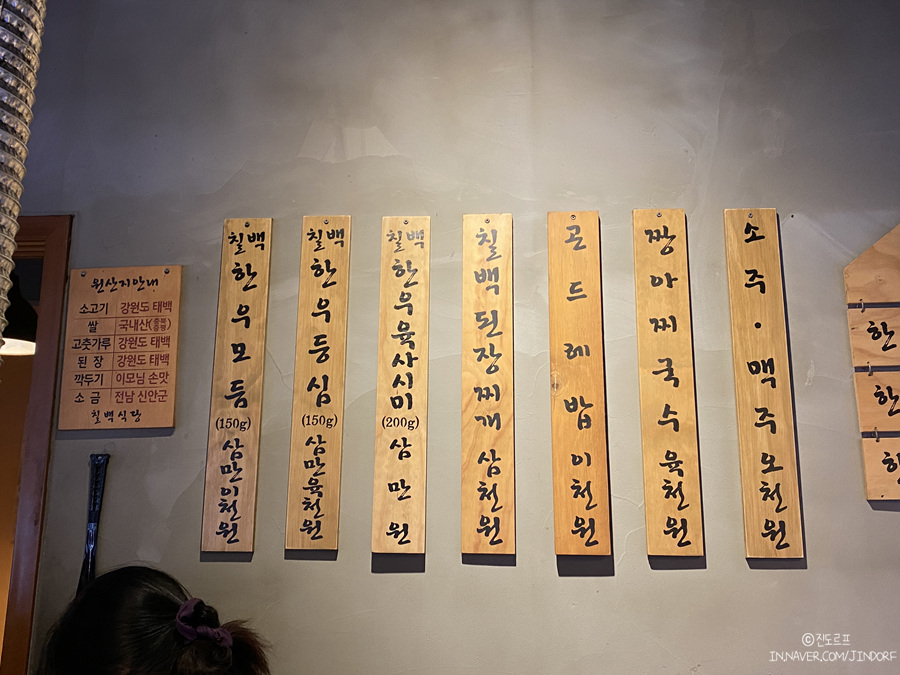 원산지안내
소고기 강원도 태백
쌀 국내산(충북
고춧가루 강원도 태백
된장 강원도 태백
깍두기 이모님 손맛
소금 전남 신안군
칠백식당
칠백 한우모듬 (150g) 삼만이천원
칠백 한우등심 (150g) 삼만육천원
칠백 한우육사시미 (200g) 삼만원
칠백된장찌개 삼천원
곤드레밥 이천원
짱아찌국수 육천원
소주·맥주 오천원
한
한
ⓒ진도르프
IN.NAVER.COM/JINDORF